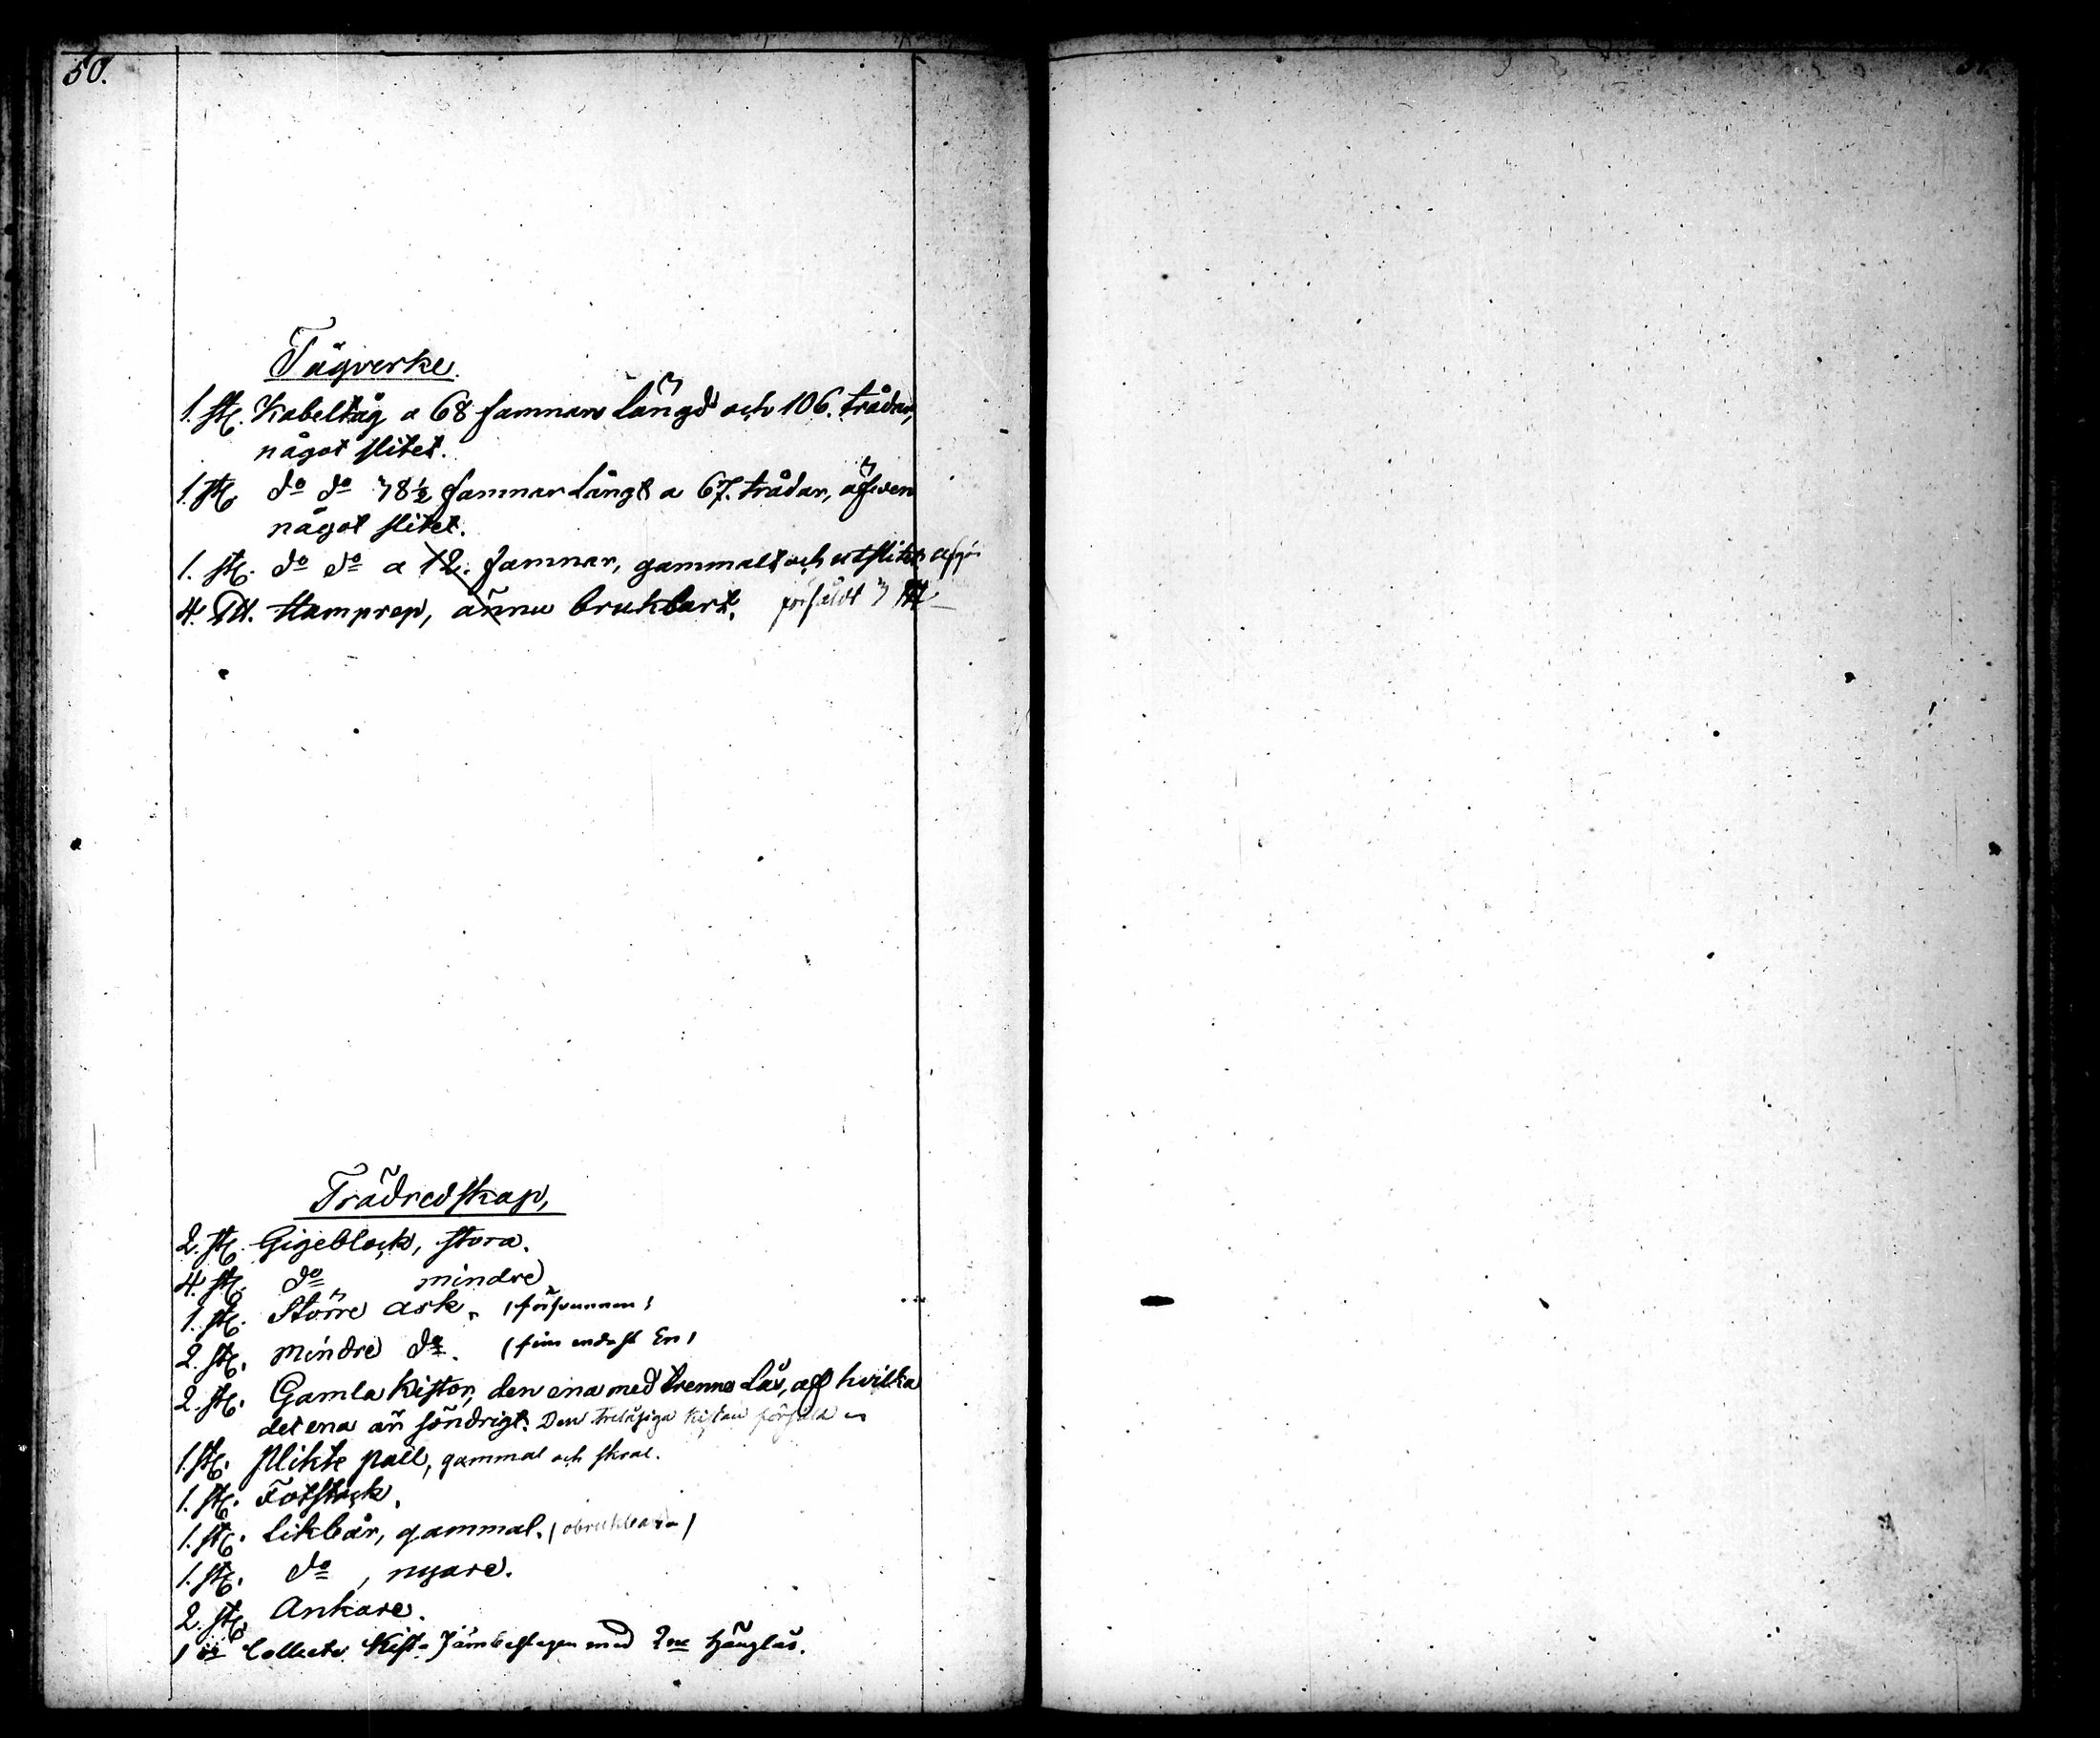 50.
Tågverke.
1. st. Kabeltåg a 68 famnars längd och 106. trådar,
något slitet.
1. st. do do 78½ famnar långt a 67. trådar, äfven
något slitet.
1. st. do do a 12. famnar, gammalt och utslitet
4. ꝉ. Hamprep, ännu brukbart. försåldt
Trädredskap,
2. st. Gigeblock, stora.
4. st. do mindre
1. st. Större ask. (försvunnen)
2. st. mindre do. (fins endast En)
2. st. Gamla Kistor, den ena med trenne Lås, aff hvilka
det ena är söndrigt. Den trelåsiga Kistan försåld
1. st. Plikte pall, gammal och skral.
1. st. Fotstock.
1. st. Likbår, gammal. (obrukbar)
1. st. do, nyare.
2. st. Ankare.
1 st Collecte Kista Järnbeslagen med 2ne Hänglås.